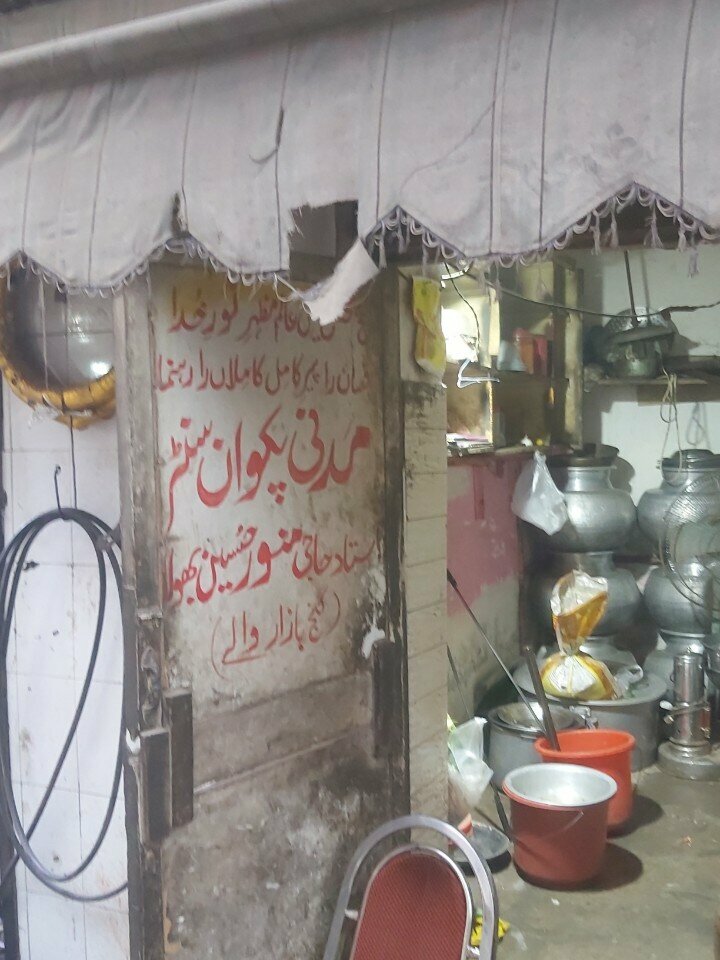 عالم مظہر نور خدا
را پیر کامل کاملاں را رہنما
مدنی پکوان سینٹر
استاد حاجی منور حسین بھولا
(گنج بازار والے)